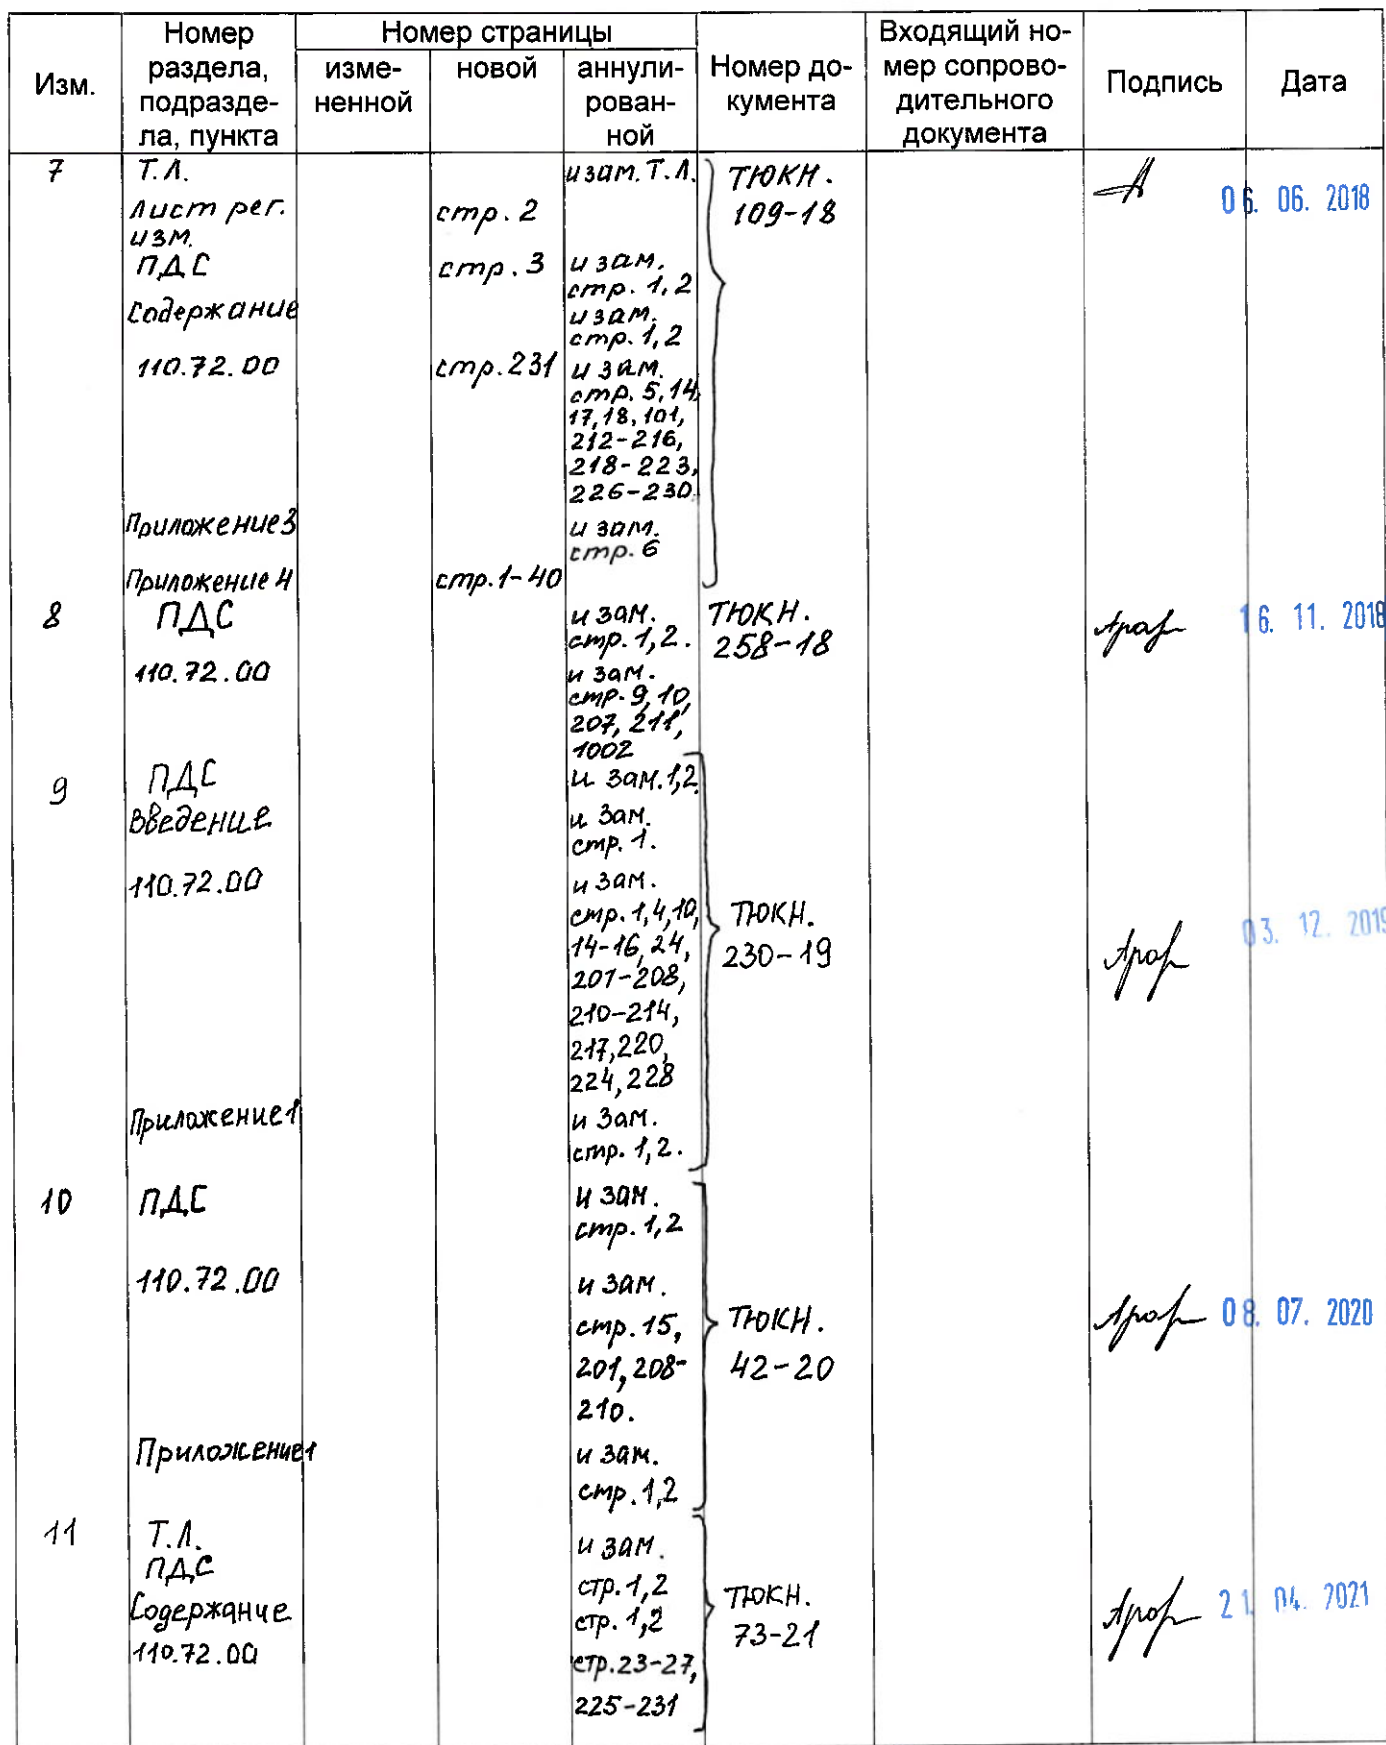 Изм.
Номер
раздела,
подразде-
ла, пункта
Номер страницы
изме-
ненной
новой
аннули-
рован-
ной
Номер до-
кумента
Входящий но-
мер сопрово-
дительного
документа
Подпись
Дата
7
Т.Л.
и зам. Т.Л.
ТЮКН.
109-18
06. 06. 2018
Лист рег.
изм.
стр. 2
ПДС
стр. 3
и зам.
стр. 1, 2
Содержание
и зам.
стр. 1, 2
110.72.00
стр. 231
и зам.
стр. 5, 14,
17, 18, 101,
212-216,
218-223,
226-230.
Приложение 3
и зам.
стр. 6
Приложение 4
стр. 1-40
8
ПДС
и зам.
стр. 1, 2.
ТЮКН.
258-18
16. 11. 2018
110.72.00
и зам.
стр. 9, 10,
207, 211,
1002
9
ПДС
и зам. 1, 2.
Введение
и зам.
стр. 1.
110.72.00
и зам.
стр. 1, 4, 10,
14-16, 24,
201-208,
210-214,
217, 220,
224, 228
ТЮКН.
230-19
03. 12. 2019
Приложение 1
и зам.
стр. 1, 2.
10
ПДС
и зам.
стр. 1, 2
110.72.00
и зам.
стр. 15,
201, 208-
210.
ТЮКН.
42-20
08. 07. 2020
Приложение 1
и зам.
стр. 1, 2
11
Т.Л.
и зам.
ПДС
стр. 1, 2
Содержание
стр. 1, 2
110.72.00
стр. 23-27,
225-231
ТЮКН.
73-21
21. 04. 2021